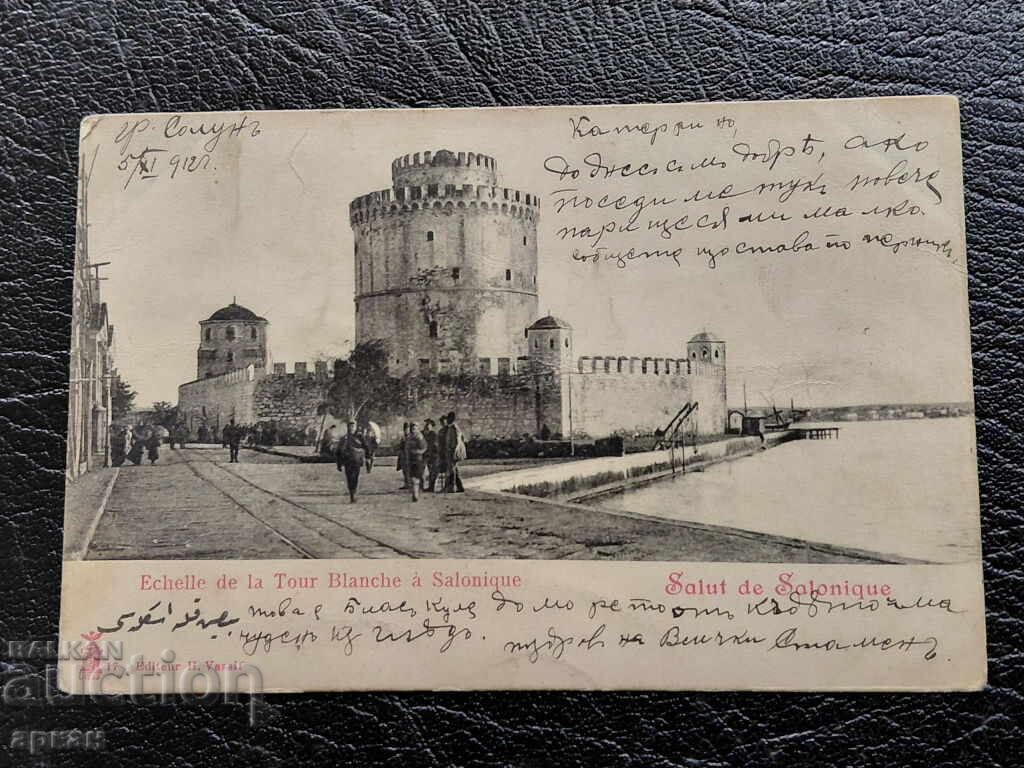 гр. Солунъ
5/XI 912 г.
Катерино,
до днесъ съмъ добрѣ, ако
поседи ме тукъ повече
пари щеся ми малко.
съобщете що става по
Echelle de la Tour Blanche à Salonique
Salut de Salonique
това е Беаскуле до морето отъ където има
чуденъ изгледъ. поздрав на Всички Стаменъ
17 Editeur H. Varsif
BALKAN
auction
аркан